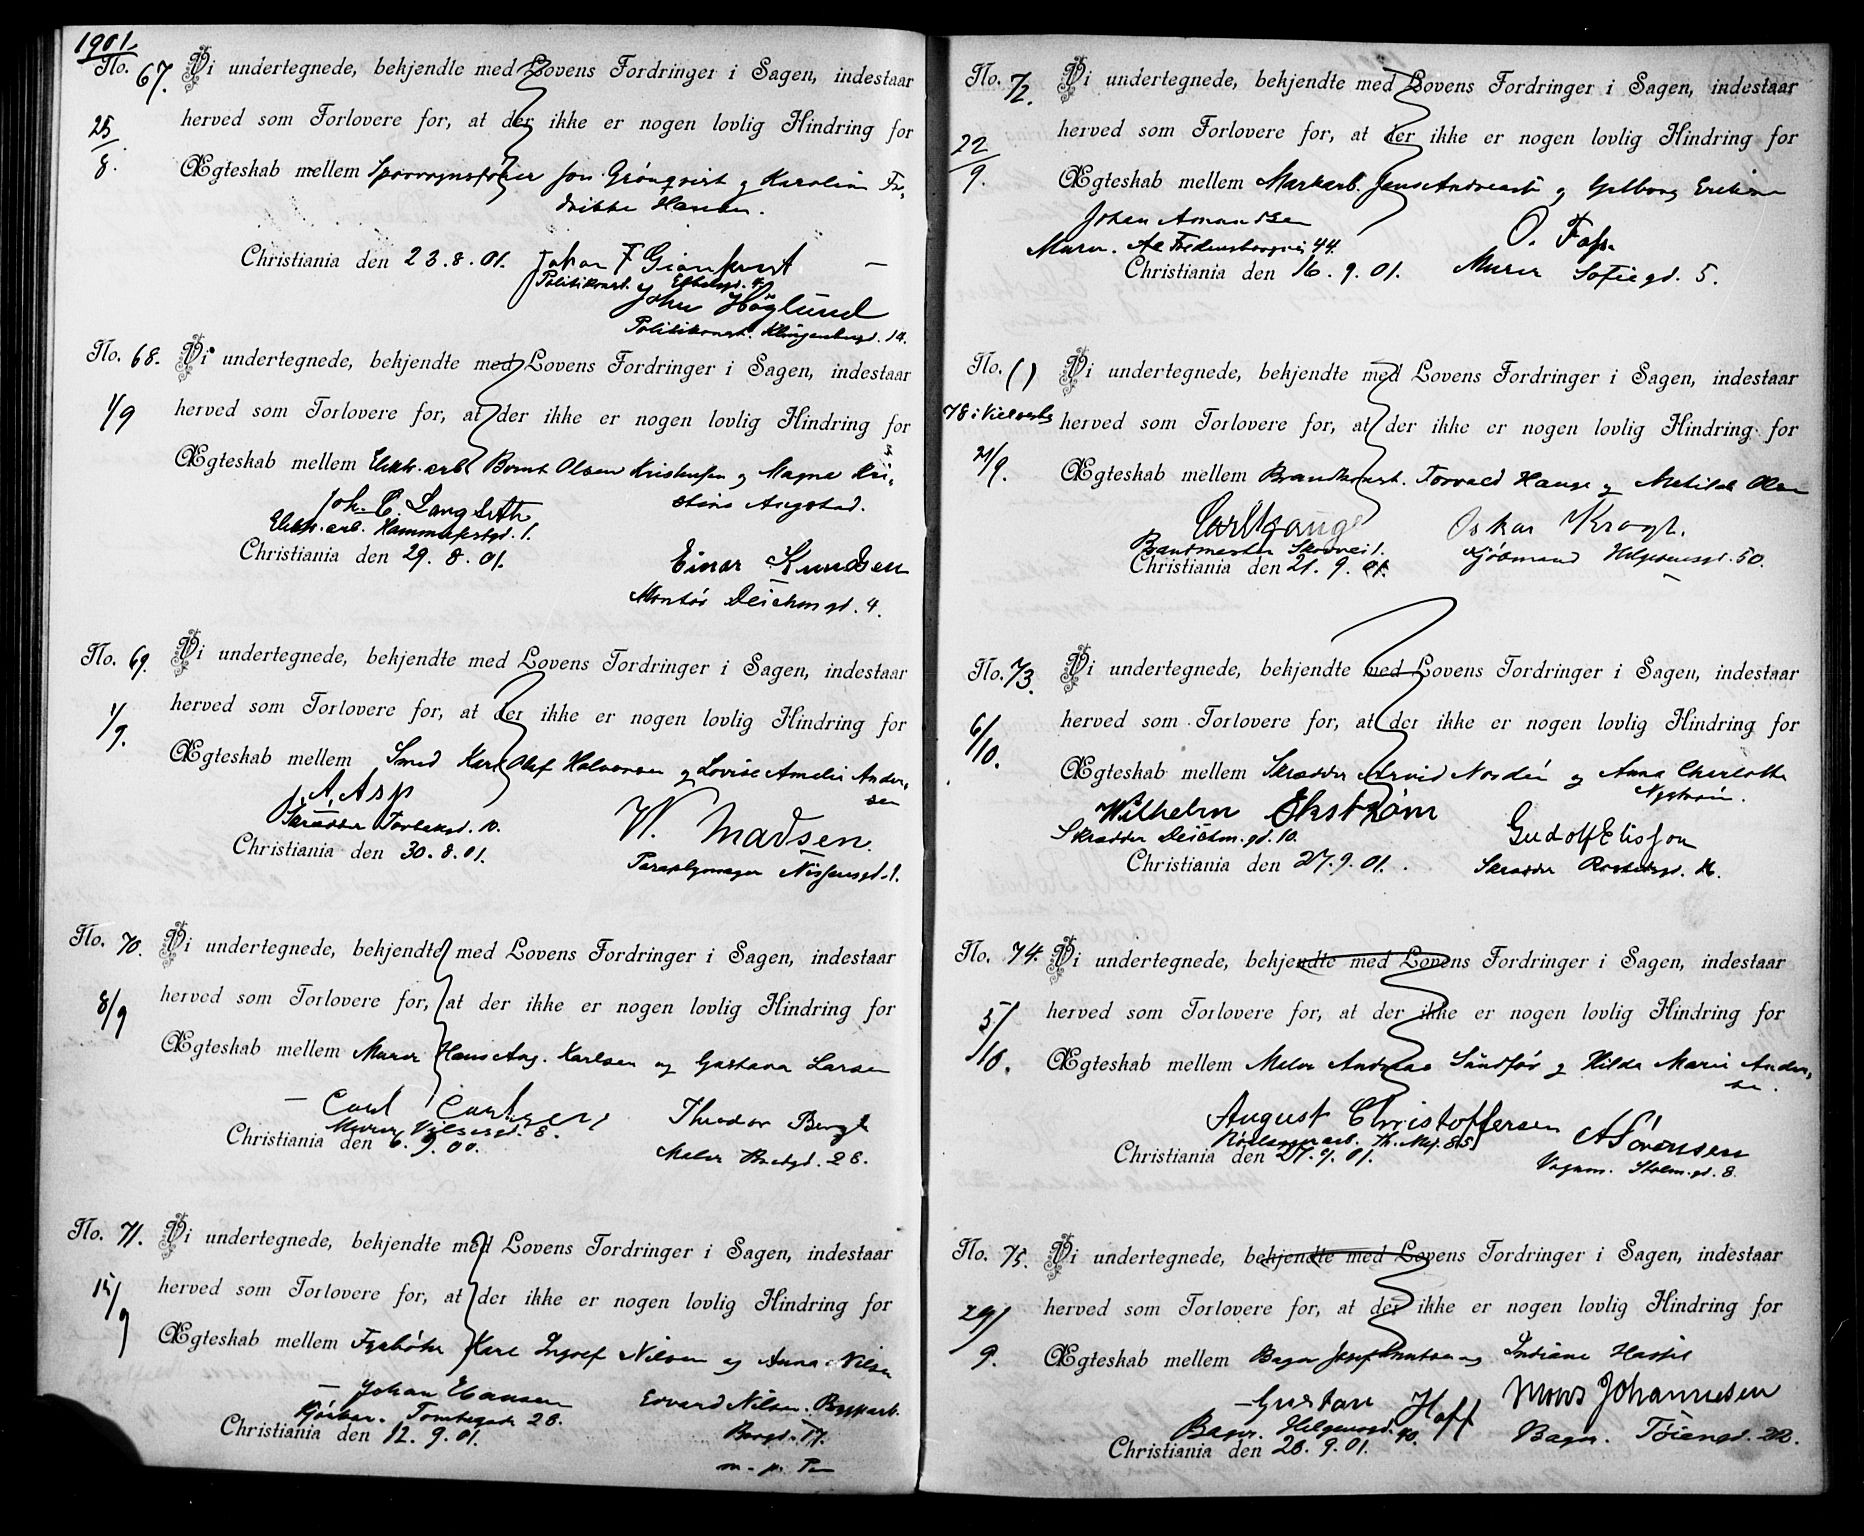 1901.
No. 67. Vi undertegnede, bekjendte med Lovens Fordringer i Sagen, indestaar
25/8. herved som Forlovere for, at der ikke er nogen lovlig Hindring for
Ægteskab mellem Sporvognsfører Jon Grönqvist og Karoline Fre-
drikke Hansen.
Christiania den 23.8.01. Johan F Grönkvist
Politikonst.
John Höglund
Politikonst. Klingenbergd. 14.
No. 68. Vi undertegnede, bekjendte med Lovens Fordringer i Sagen, indestaar
1/9 herved som Forlovere for, at der ikke er nogen lovlig Hindring for
Ægteskab mellem Elektr. arb. Bernt Olsen Kristensen og Magna Kri-
stine Angstad.
Joh. C. Langseth
Elektr. arb. Hammerfestgd. 1.
Christiania den 29.8.01. Einar Knudsen
Montör Deichm.gd. 4.
No. 69. Vi undertegnede, bekjendte med Lovens Fordringer i Sagen, indestaar
1/9. herved som Forlovere for, at der ikke er nogen lovlig Hindring for
Ægteskab mellem Smed Karl Olaf Halvorsen og Lovise Amelie Ander-
sen
A. Asp
Skrædder Torbaksgd. 10.
Christiania den 30.8.01. W. Madsen.
Paraplymager Nissensgd. 1.
No. 70. Vi undertegnede, bekjendte med Lovens Fordringer i Sagen, indestaar
8/9 herved som Forlovere for, at der ikke er nogen lovlig Hindring for
Ægteskab mellem Murer Hans Aug. Karlsen og Gustava Larsen
Carl Carlsen Theodor Bergh
Murer 8.
Christiania den 6.9.00. Maler 28.
No. 71. Vi undertegnede, bekjendte med Lovens Fordringer i Sagen, indestaar
15/9 herved som Forlovere for, at der ikke er nogen lovlig Hindring for
Ægteskab mellem Fyrböter Karl Ingolf Nilsen og Anna Nilsen
Johan Hansen Edvard Nilsen. Bryggarb.
Kjörkar. Tomtegade 28.
Christiania den 12.9.01. Borgd. 17.
m. p. P
No. 72. Vi undertegnede, bekjendte med Lovens Fordringer i Sagen, indestaar
22/9. herved som Forlovere for, at der ikke er nogen lovlig Hindring for
Ægteskab mellem Murarb. Jens Andreas og Gelborg Eriksen
Johan Amandsen O. Foss.
Murer. Fredensborgvei 44.
Christiania den 16.9.01. Murer Sofiegd. 5.
No. ( ) Vi undertegnede, bekjendte med Lovens Fordringer i Sagen, indestaar
78 i herved som Forlovere for, at der ikke er nogen lovlig Hindring for
21/9. Ægteskab mellem Brandkonst. Torvald Hauge og Matilde Olsen
Carl Hauge Oskar Krogh.
Brandmester Skovvei 1.
Christiania den 21.9.01. Kjöbmand Helgesensgd. 50.
No. 73. Vi undertegnede, bekjendte med Lovens Fordringer i Sagen, indestaar
6/10. herved som Forlovere for, at der ikke er nogen lovlig Hindring for
Ægteskab mellem Skrædder Arvid Nordén og Anna Charlotte
Nyström.
Wilhelm Ekström Gudolf Elisson
Skrædder Deichm.gd. 10.
Christiania den 27.9.01. Skrædder 16.
No. 74. Vi undertegnede, bekjendte med Lovens Fordringer i Sagen, indestaar
5/10. herved som Forlovere for, at der ikke er nogen lovlig Hindring for
Ægteskab mellem Maler Andreas Sundför og Hilda Marie Ander-
sen.
August Christoffersen A Sörensen
Rörlæggerarb. Th. Mej. 85
Christiania den 27.9.01. Vognm. Holm.gd. 8.
No. 75. Vi undertegnede, bekjendte med Lovens Fordringer i Sagen, indestaar
29/9. herved som Forlovere for, at der ikke er nogen lovlig Hindring for
Ægteskab mellem Bager Josef Knutsen og Indiane Hassel
Gustav Hoff Mons Johannesen
Bager. Helgesensgd. 40.
Christiania den 28.9.01. Bager. Töiengd. 22.